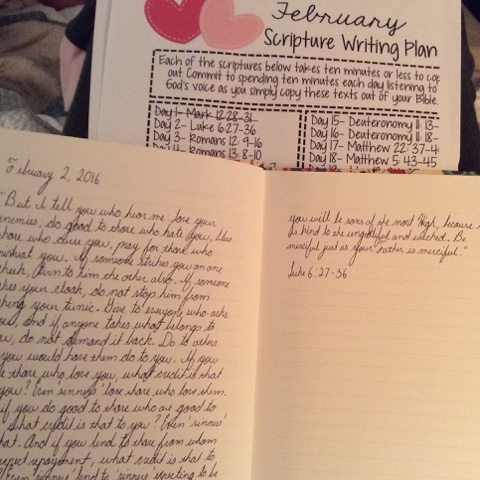 February
Scripture Writing Plan
Each of the scriptures below takes ten minutes or less to cop
out. Commit to spending ten minutes each day listening to
God's voice as you simply copy these texts out of your Bible.
Day 1- Mark 12:28-31
Day 2- Luke 6:27-36
Day 3- Romans 12: 9-16
Day 4- Romans 13: 8-10
Day 15- Deuteronomy 11: 13-
Day 16- Deuteronomy 11: 18-
Day 17- Matthew 22: 37-4
Day 18- Matthew 5: 43-45
February 2, 2016
"But I tell you who hear me: love your
enemies, do good to those who hate you, bless
those who curse you, pray for those who
mistreat you. If someone strikes you on one
cheek, turn to him the other also. If someone
takes your cloak, do not stop him from
taking your tunic. Give to everyone who asks
you, and if anyone takes what belongs to
you, do not demand it back. Do to others
you would have them do to you. If you
those who love you, what credit is that
you? Even 'sinners' love those who love them.
if you do good to those who are good to
what credit is that to you? Even 'sinners'
that. And if you lend to those from whom
expect repayment, what credit is that to
Even 'sinners' lend to 'sinners' expecting to be
you will be sons of the most High, because
is kind to the ungrateful and wicked. Be
merciful just as your Father is merciful."
Luke 6:27-36